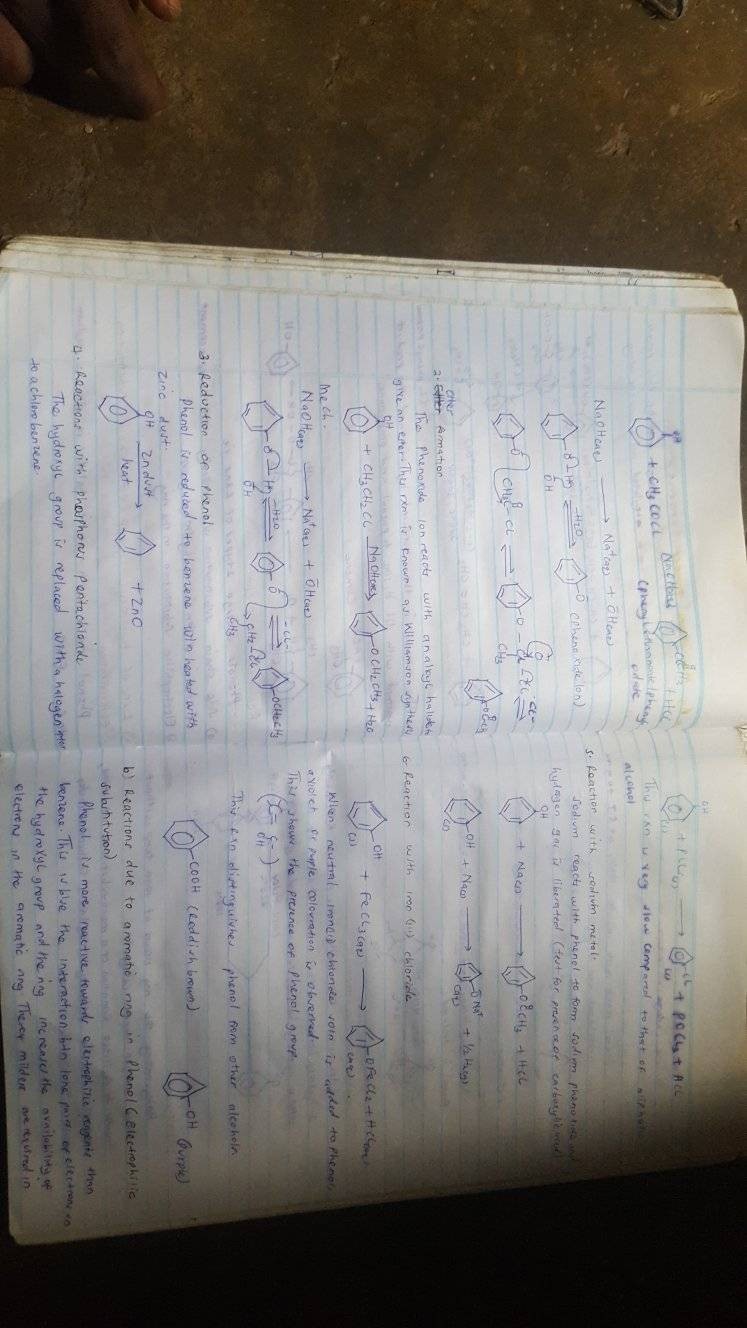 OH
+ CH3COCl NaOH(aq) + HCl
NaOH(aq) → Na+(aq) + ŌH(aq)
-H2O
(phenoxide ion)
OH
CH3C Cl
CH3
2. ether formation
The phenoxide ion reacts with an alkyl halide to
give an ether. This rxn is known as Williamson synthesis
OH
+ CH3CH2Cl NaOH(aq) → OCH2CH3 + H2O
Mech.
NaOH(aq) → Na+(aq) + ŌH(aq)
-H2O
-Cl-
OCH2CH3
OH
CH2-Cl
CH3
3. Reduction of phenol
Phenol is reduced to benzene win heated with
zinc dust.
OH
Zn dust
heat
+ ZnO
4. Reactions with phosphorus pentachloride
The hydroxyl group is replaced with a halogen
to a chlorobenzene.
OH
+ PCl5(s) → Cl + POCl3 + HCl
(s)
This rxn is very slow compared to that of
alcohol
5. Reaction with sodium metal.
Sodium reacts with phenol to form sodium phenoxide and
hydrogen gas is liberated (test for presence of carboxylic acid)
OH
+ Na(s) → OCCH3 + HCl
OH + Na(s) → ONa+ + 1/2 H2(g)
(s) (aq)
6 Reaction with iron (III) chloride
OH + FeCl3(aq) → OFeCl2 + HCl(aq)
(s) (aq)
When neutral iron(III) chloride soln is added to phenol,
a violet or purple colouration is observed.
This shows the presence of phenol group
OH
This rxn distinguishes phenol from other alcohols
COOH (Reddish brown) OH (purple)
b) Reactions due to aromatic ring in Phenol (Electrophilic
substitution)
Phenol is more reactive towards electrophilic reagents than
benzene. This is b/se the interaction btn lone pairs of electron on
the hydroxyl group and the ring increases the availability of
electrons in the aromatic ring. The milder are required in